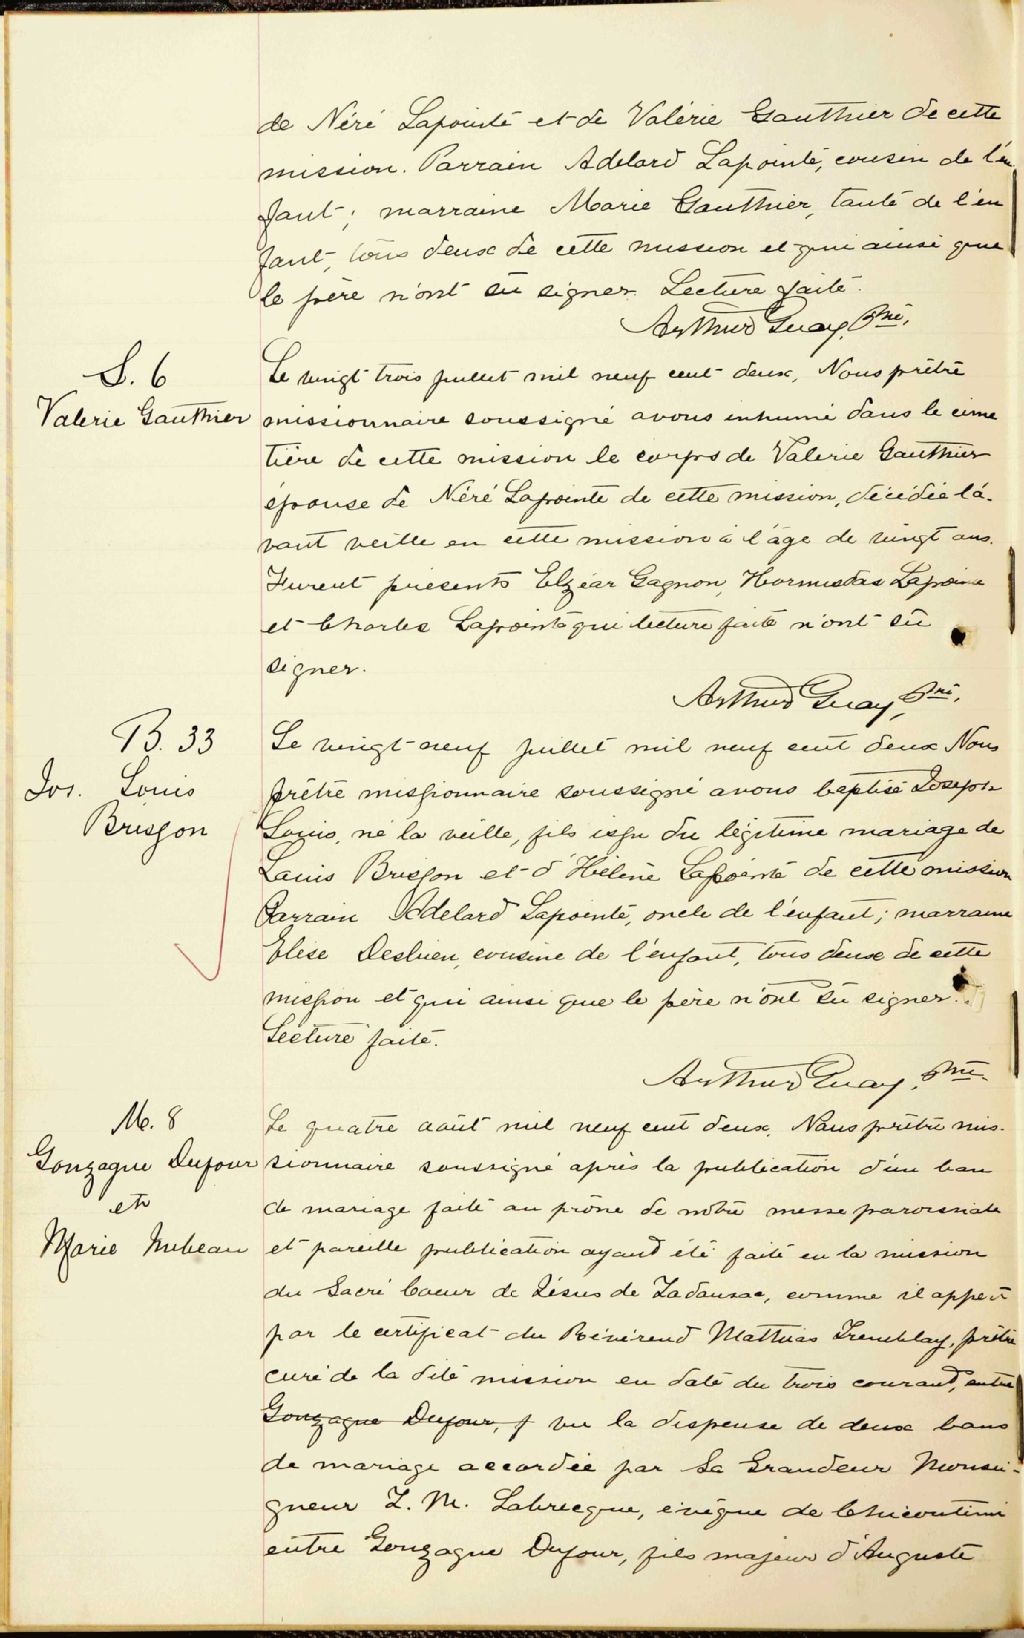 de Néré Lapointe et de Valérie Gauthier de cette
mission. Parrain Adelard Lapointe, cousin de l'en
fant; marraine Marie Gauthier, tante de l'en
fant, tous deux de cette mission et qui ainsi que
le père n'ont su signer. Lecture faite.
Arthur Guay, Ptre,
S. 6
Valerie Gauthier
Le vingt trois juillet mil neuf cent deux, Nous prêtre
missionnaire soussigné avons inhumé dans le cime
tière de cette mission le corps de Valerie Gauthier
épouse de Néré Lapointe de cette mission, décédée l'a-
vant veille en cette mission à l'âge de vingt ans.
Furent présents Elzéar Gagnon, Hormisdas Lapointe
et Charles Lapointe qui lecture faite n'ont su
signer.
Arthur Guay, Ptre,
B. 33
Jos. Louis
Brisson
Le vingt-neuf juillet mil neuf cent deux Nous
prêtre missionnaire soussigné avons baptisé Joseph
Louis, né la veille, fils issu du légitime mariage de
Louis Brisson et d'Hélène Lapointe de cette mission
Parrain Adelard Lapointe, oncle de l'enfant; marraine
Elise Desbien, cousine de l'enfant, tous deux de cette
mission et qui ainsi que le père n'ont su signer.
Lecture faite.
Arthur Guay, Ptre.
M. 8
Gonzague Dufour
et
Marie
Le quatre août mil neuf cent deux, Nous prêtre mis-
sionnaire soussigné après la publication d'un ban
de mariage faite au prône de notre messe paroissiale
et pareille publication ayant été faite en la mission
du Sacré Coeur de Jésus de Tadousac, comme il appert
par le certificat du Révérend Mathias Tremblay, prêtre
curé de la dite mission en date du trois courant, entre
Gonzague Dufour, f vu la dispense de deux bans
de mariage accordée par Sa Grandeur Monsei-
gneur T. M. Labrecque, évêque de Chicoutimi
entre Gonzague Dufour, fils majeur d'Auguste